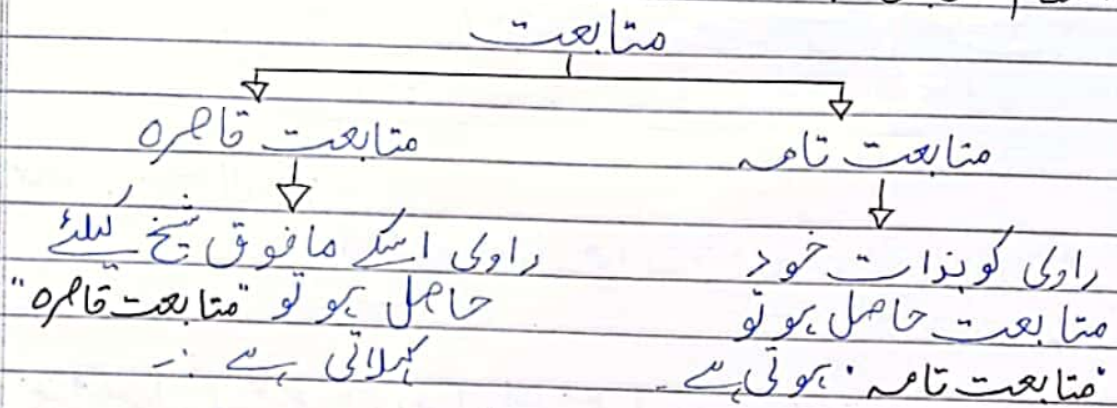 متابعت
متابعت تامہ
متابعت قاصرہ
راوی کو بذات خود
متابعت حاصل ہو تو
"متابعت تامہ" ہوتی ہے۔
راوی اسکے مافوق شیخ کیلئے
حاصل ہو تو "متابعت قاصرہ"
کہلاتی ہے :۔